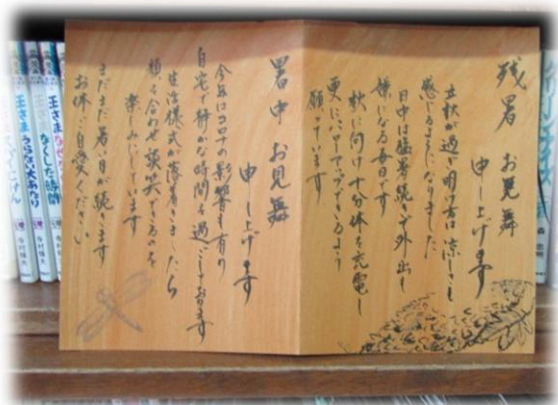 残暑お見舞
申し上げます
立秋が過ぎ明け方は涼しさも
感じるようになりました
日中は猛暑続きで外出も
嫌になる毎日です
秋に向け十分体を充電し
更にパワーアップできるよう
願っています
暑中お見舞
申し上げます
今年はコロナの影響も有り
自宅で静かな時間を過ごしております
生活様式が落着きましたら
顔を合わせ談笑できるのを
楽しみにしています
まだまだ暑い日が続きます
お体ご自愛ください
王さま
なくした時間
寺村輝夫
王さま
うらない大あたり
寺村輝夫